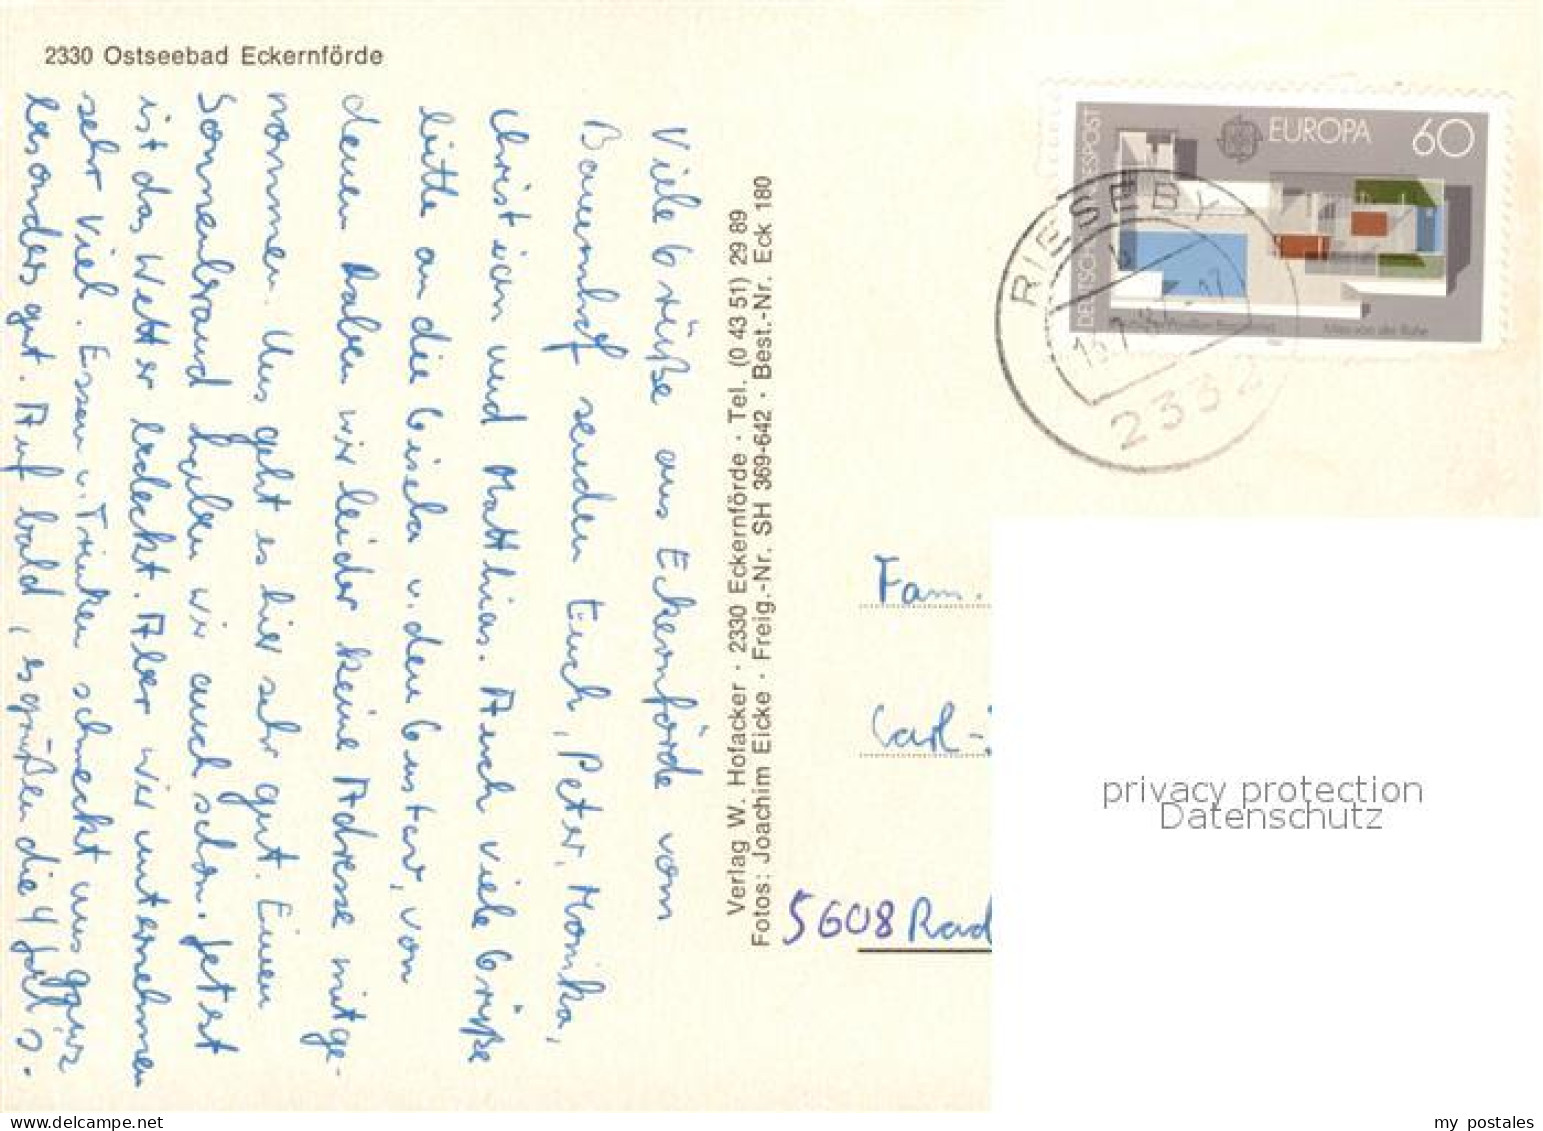 2330 Ostseebad Eckernförde
Viele Grüße aus Eckernförde vom
Bauernhof senden Euch, Peter, Monika,
Christian und Matthias. Auch viele Grüße
bitte an die Gisela u. den Gustav, von
denen haben wir leider keine Adresse mitge-
nommen. Uns geht es hier sehr gut. Einen
Sonnenbrand haben wir auch schon. Jetzt
ist das Wetter bedeckt. Aber wir unternehmen
sehr viel. Essen u. Trinken schmeckt uns ganz
besonders gut. Auf bald, es grüßen die 4
Verlag W. Hofacker · 2330 Eckernförde · Tel. (0 43 51) 29 89
Fotos: Joachim Eicke · Freig.-Nr. SH 369-642 · Best.-Nr. Eck 180
DEUTSCHE BUNDESPOST
EUROPA 60
Mies van der Rohe
RIESEBY
2332
Fam.
Carl-
5608 Rad
privacy protection
Datenschutz
my postales